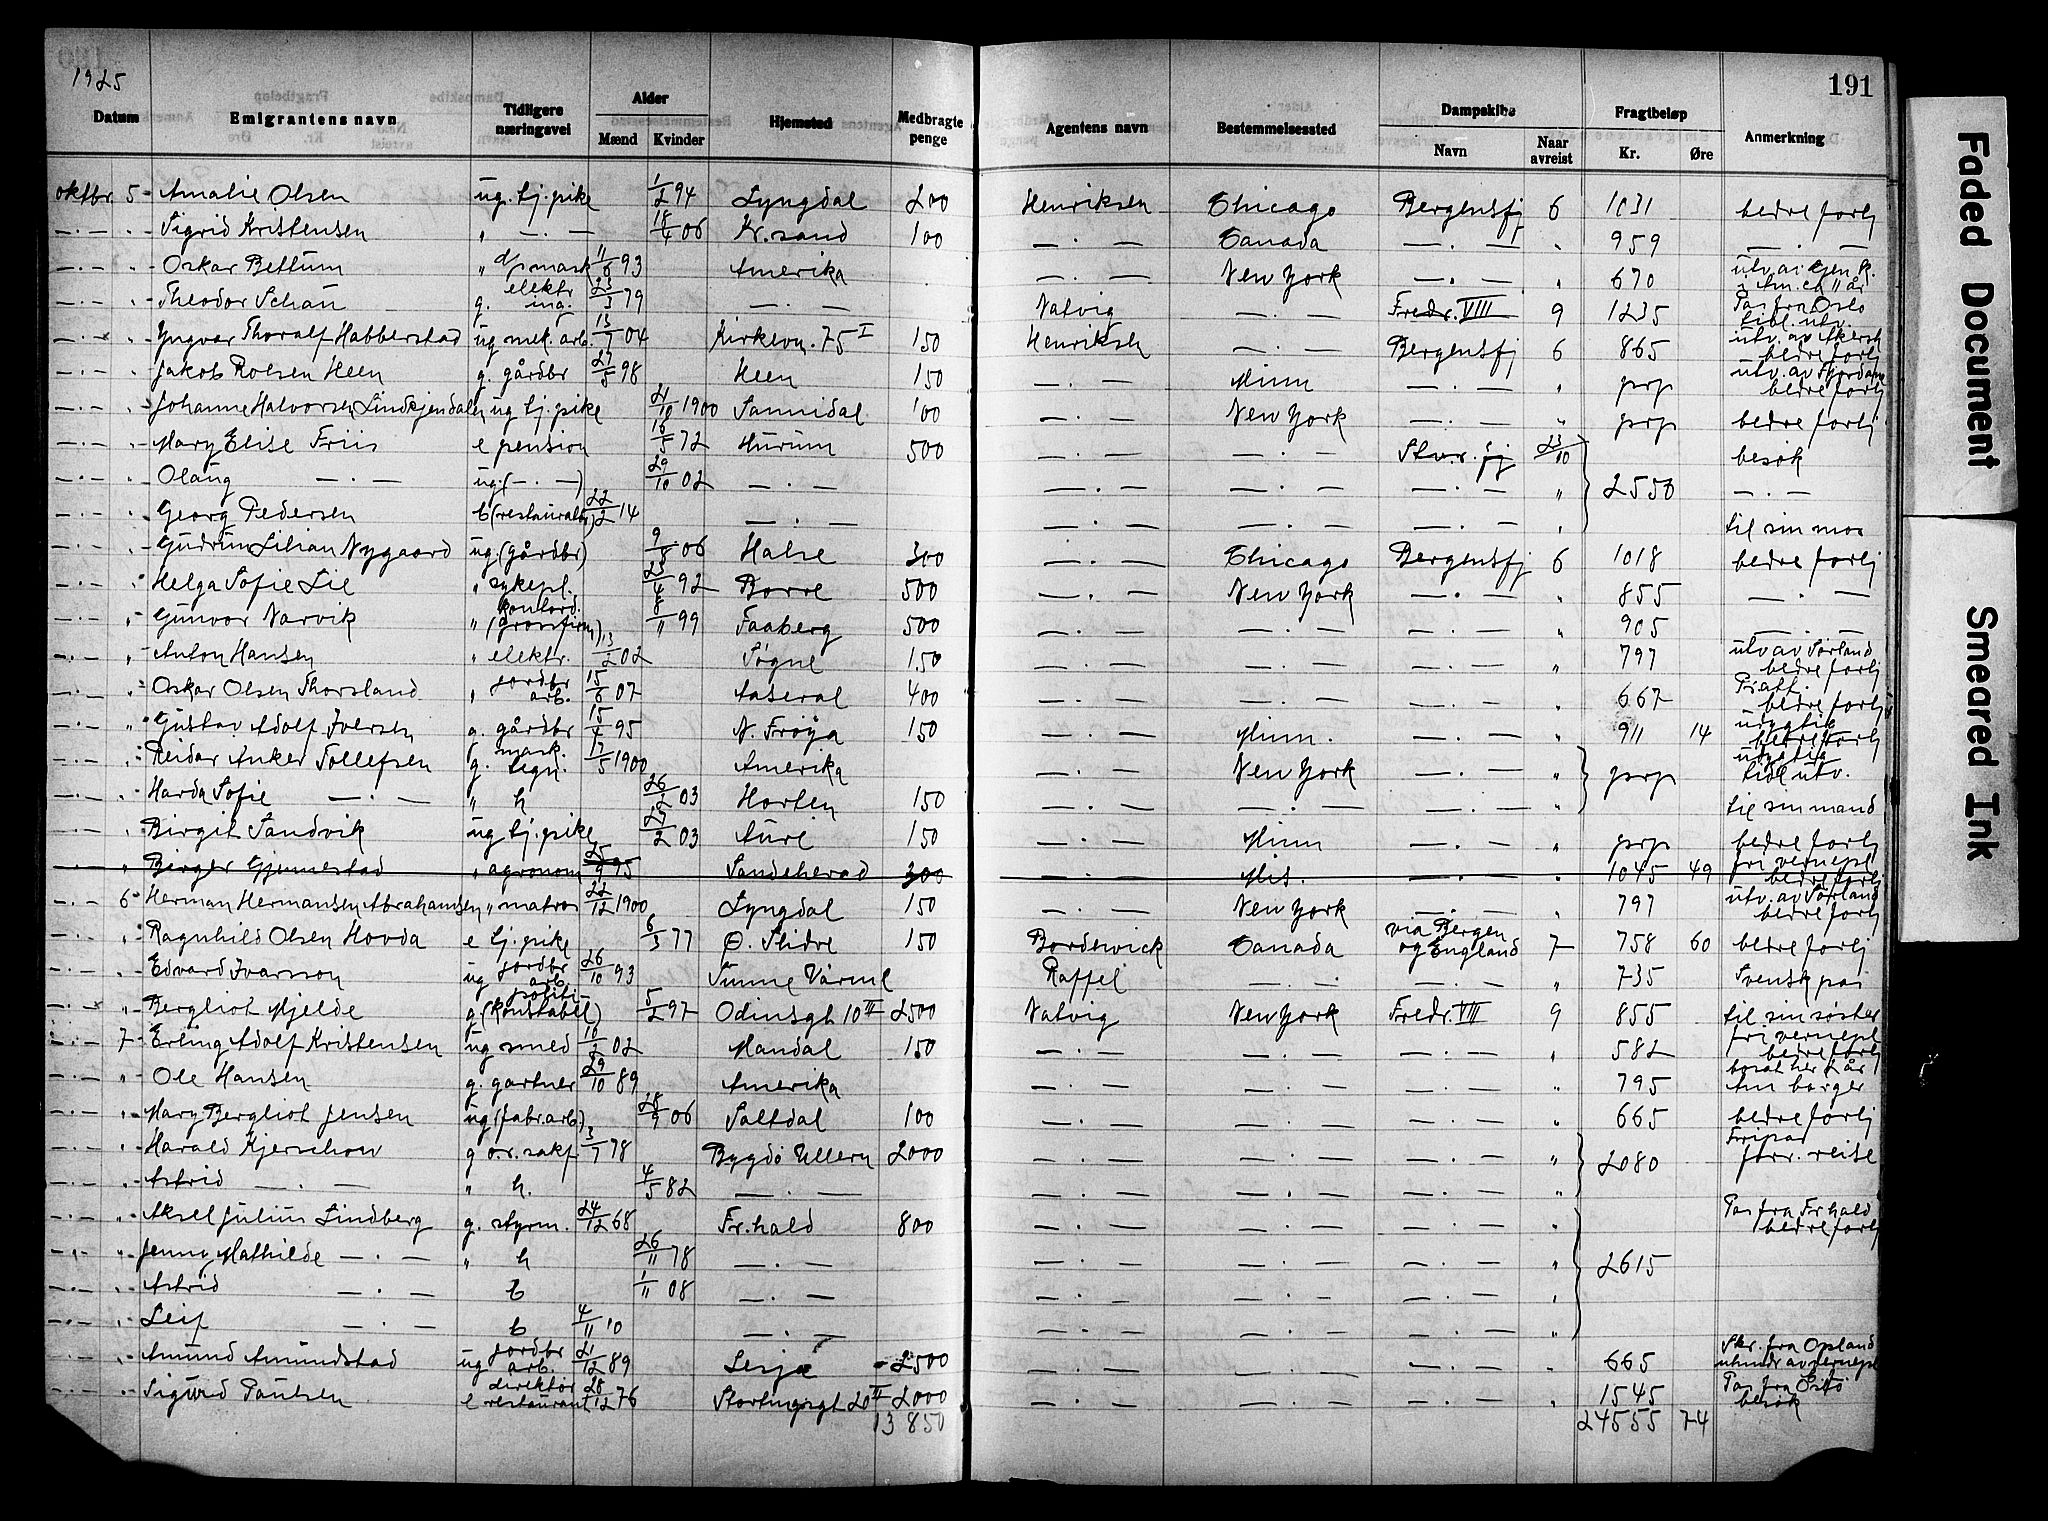 191
1925
Datum Emigrantens navn Tidligere næringsvei Alder Mænd Kvinder Hjemsted Medbragte penge Agentens navn Bestemmelsessted Dampskibe Navn Naar avreist Fragtbeløp Kr. Øre Anmerkning
oktbr. 5 - Amalie Olsen ug. tj. pike 1/2 94 Lyngdal 200 Henriksen Chicago Bergensfj 6 1031 bedre forhj
-.- " Sigrid Kristensen " -.- 18/4 06 Kr.sand 100 -.- Canada -.- " 959 -.-
-.- " Oskar Bettum " 11/6 93 Amerika -.- New York -.- " 670
-.- " Theodor Schau g. elektr ing. 23/3 79 -.- Natvig -.- Fredr. VIII 9 1235 Pas fra Oslo
-.- " Yngvar Thoralf Habberstad ug mek. arb. 13/7 04 Kirkevn. 75 I 150 Henriksen -.- Bergensfj 6 865 bedre forhj
-.- " Jakob Rolsen Heen g. gårdbr 27/5 98 Heen 150 -.- Minn -.- " prp bedre forhj
-.- " Johanne Halvorsen Lindkjendalen ug tj. pike 21/10 1900 Sannidal 100 -.- New York -.- " prp bedre forhj
-.- " Mary Elise Friis e pension 16/5 72 Hurum 500 -.- -.- Stvr. fj 23/10 besøk
-.- " Olaug -.- ug. (-.-) 29/10 02 -.- -.- -.- -.- " 2550 -.-
-.- " Georg Pedersen b (restauratør) 22/2 14 -.- -.- -.- -.- " til sin mor
-.- " Gudrun Lilian Nygaard ug. (gårdbr) 9/8 06 Halse 300 -.- Chicago Bergensfj 6 1018 bedre forhj
-.- " Helga Sofie Lie " sykepl. 23/4 92 Borre 500 -.- New York -.- " 855 -.-
-.- " Gunvor Narvik " kontord. (grossfirm) 8/11 99 Faaberg 500 -.- -.- -.- " 905 -.-
-.- " Anton Hansen " elektr. 13/2 02 Søgne 150 -.- -.- -.- " 797 utv av Sørland bedre forhj
-.- " Oskar Olsen Thorsland " jordbr arb. 15/6 07 Aaseral 400 -.- -.- -.- " 667 bedre forhj
-.- " Gustav Adolf Iversen g. gårdbr 15/4 95 N. Frøya 150 -.- Minn. -.- " 911 14 udygtig bedre forhj
-.- " Reidar Anker Tollefsen g. mask. tegn. 17/5 1900 Amerika New York -.- " prp udygtig tidl utv.
-.- " Harda Sofie -.- " h 26/2 03 Horten 150 -.- -.- -.- " til sin mand
-.- " Birgit Sandvik ug tj. pike 27/2 03 Aure 150 -.- Minn -.- " prp bedre forhj
-.- " Birger Gjennestad " agronom 25/9 95 Sandeherad 300 -.- Mis. -.- " 1045 49 fri vernepl bedre forhj
-.- 6 - Herman Hermansen Abrahamsen " matros 22/12 1900 Lyngdal 150 -.- New York -.- " 797 utv. av Sørland bedre forhj
-.- " Ragnhild Olsen Hovda e tj. pike 6/3 77 Ø. Slidre 150 Bordewick Canada via Bergen og England 7 758 60 bedre forhj
-.- " Edvard Ivarsson ug jordbr arb 26/10 93 Sunne Värml Raffel -.- -.- " 735 Svensk pas
-.- " Bergliot Mjelde g (politi- konstabel) 5/2 97 Odinsgt 10 III 2500 Natvig New York Fredr. VIII 9 855 til sin søster
-.- 7 - Erling Adolf Kristensen ug smed 10/2 02 Mandal 150 -.- -.- -.- " 582 fri vernepl bedre forhj
-.- " Ole Hansen g. gartner 29/10 89 Amerika -.- -.- -.- " 795 Am borger
-.- " Mary Bergliot Jensen ug (fabr. arb.) 28/9 06 Saltdal 100 -.- -.- -.- " 665 bedre forhj
-.- " Harald Kjerschow g o.r. sakf. 3/7 78 Bygdö Ullern 2000 -.- -.- -.- " 2080 forr. reise
-.- " Astrid -.- " h. 4/5 82 -.- -.- -.- -.- "
-.- " Aksel Julius Lindberg g. styrm. 24/12 68 Fr.hald 800 -.- -.- -.- " Pas fra Fr.hald bedre forhj
-.- " Jenny Mathilde -.- " h 26/11 78 -.- -.- -.- -.- " 2615
-.- " Astrid -.- b 1/11 08 -.- -.- -.- -.- "
-.- " Leif -.- b 4/11 10 -.- -.- -.- -.- "
-.- " Amund Amundstad ug jordbr arb. 21/12 89 Lesja 2500 -.- -.- -.- " 665 Skr. fra Opland
-.- " Sigurd Paulsen e direktør restaurant 28/12 76 Stortingsgt 20 II 2000 -.- -.- -.- " 1545 Pas fra Oslo besøk
13 850 24555 74
Faded Document
Smeared Ink